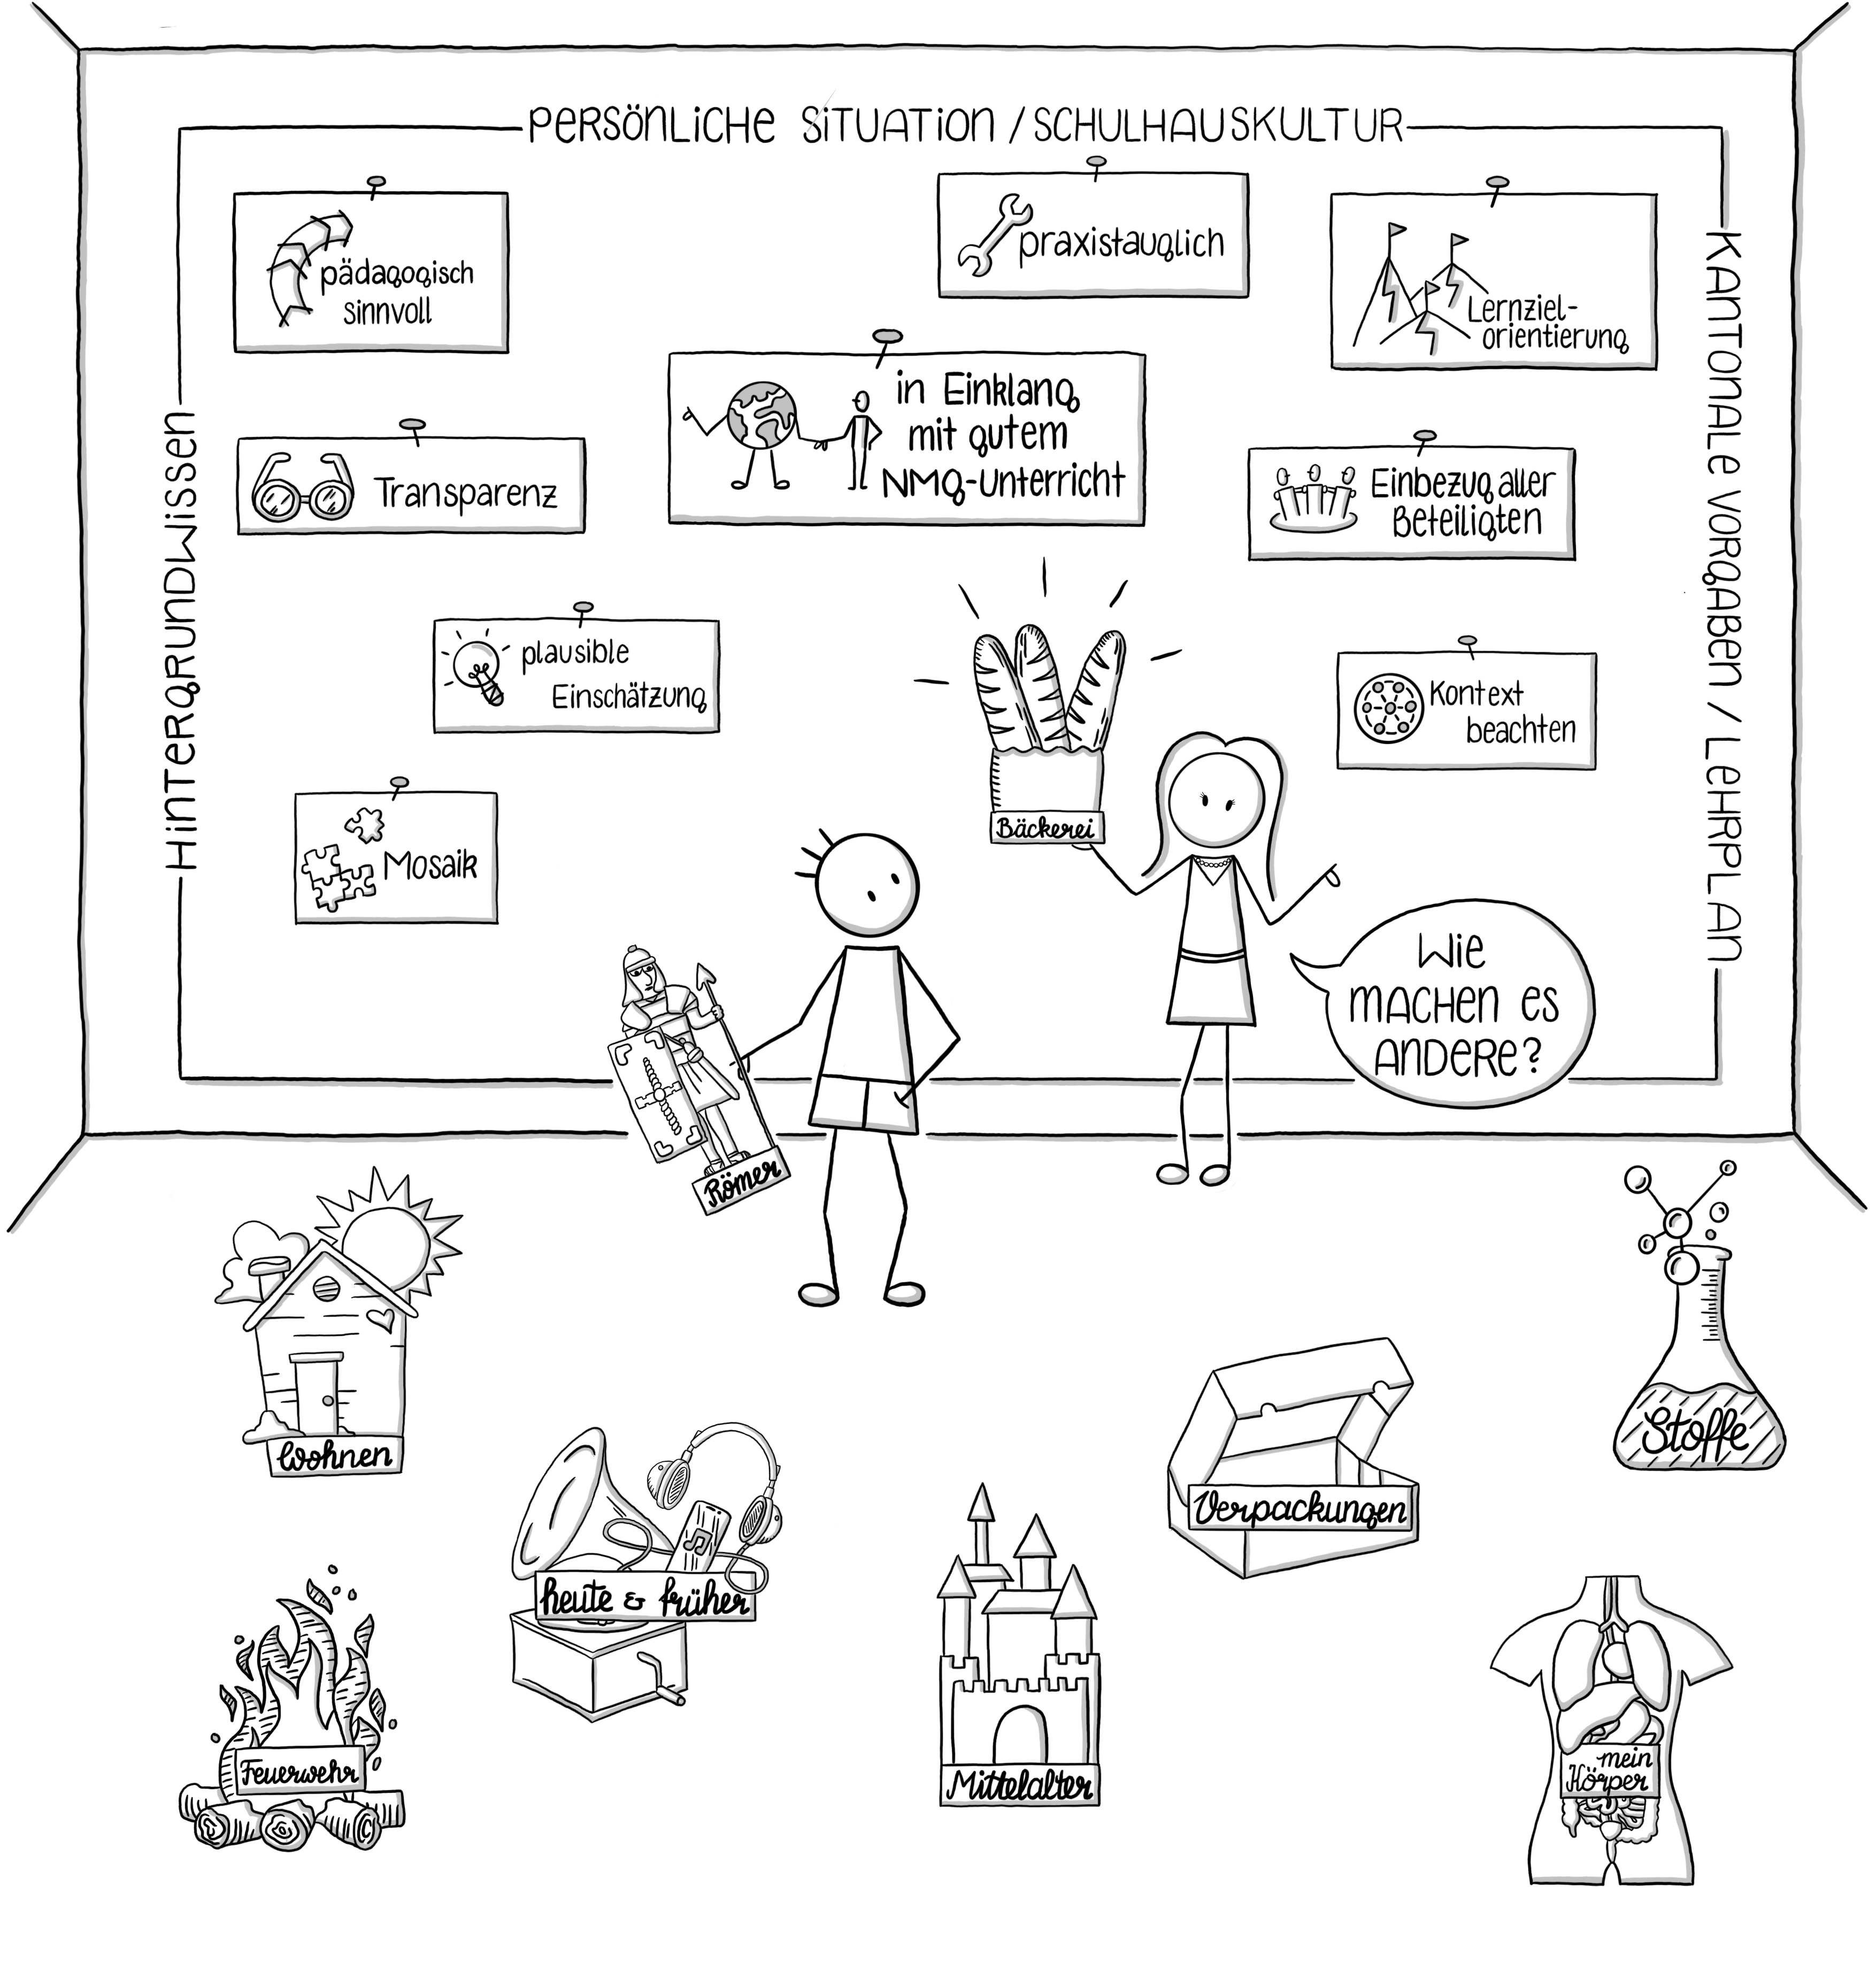 PERSÖNLICHE SITUATION / SCHULHAUSKULTUR
HINTERGRUNDWISSEN
KANTONALE VORGABEN / LEHRPLAN
pädagogisch
sinnvoll
praxistauglich
Lernziel-
orientierung
in Einklang
mit gutem
NMG-Unterricht
Transparenz
Einbezug aller
Beteiligten
plausible
Einschätzung
Kontext
beachten
Mosaik
Bäckerei
WIE
MACHEN ES
ANDERE?
Römer
Wohnen
Stoffe
Verpackungen
heute & früher
Feuerwehr
Mittelalter
mein
Körper